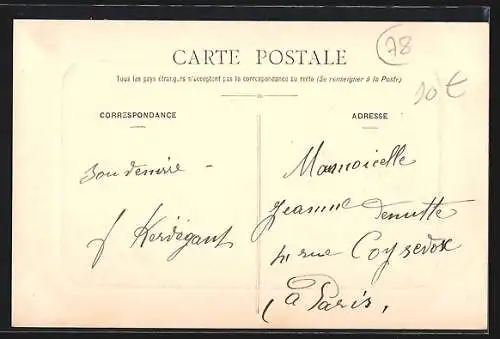 78
CARTE POSTALE
Tous les pays étrangers n'acceptent pas la correspondance au recto (Se renseigner à la Poste)
10€
CORRESPONDANCE
ADRESSE
Kerdégant
Mamoicelle
Jeanne Denutte
rue Coysevox
à Paris,